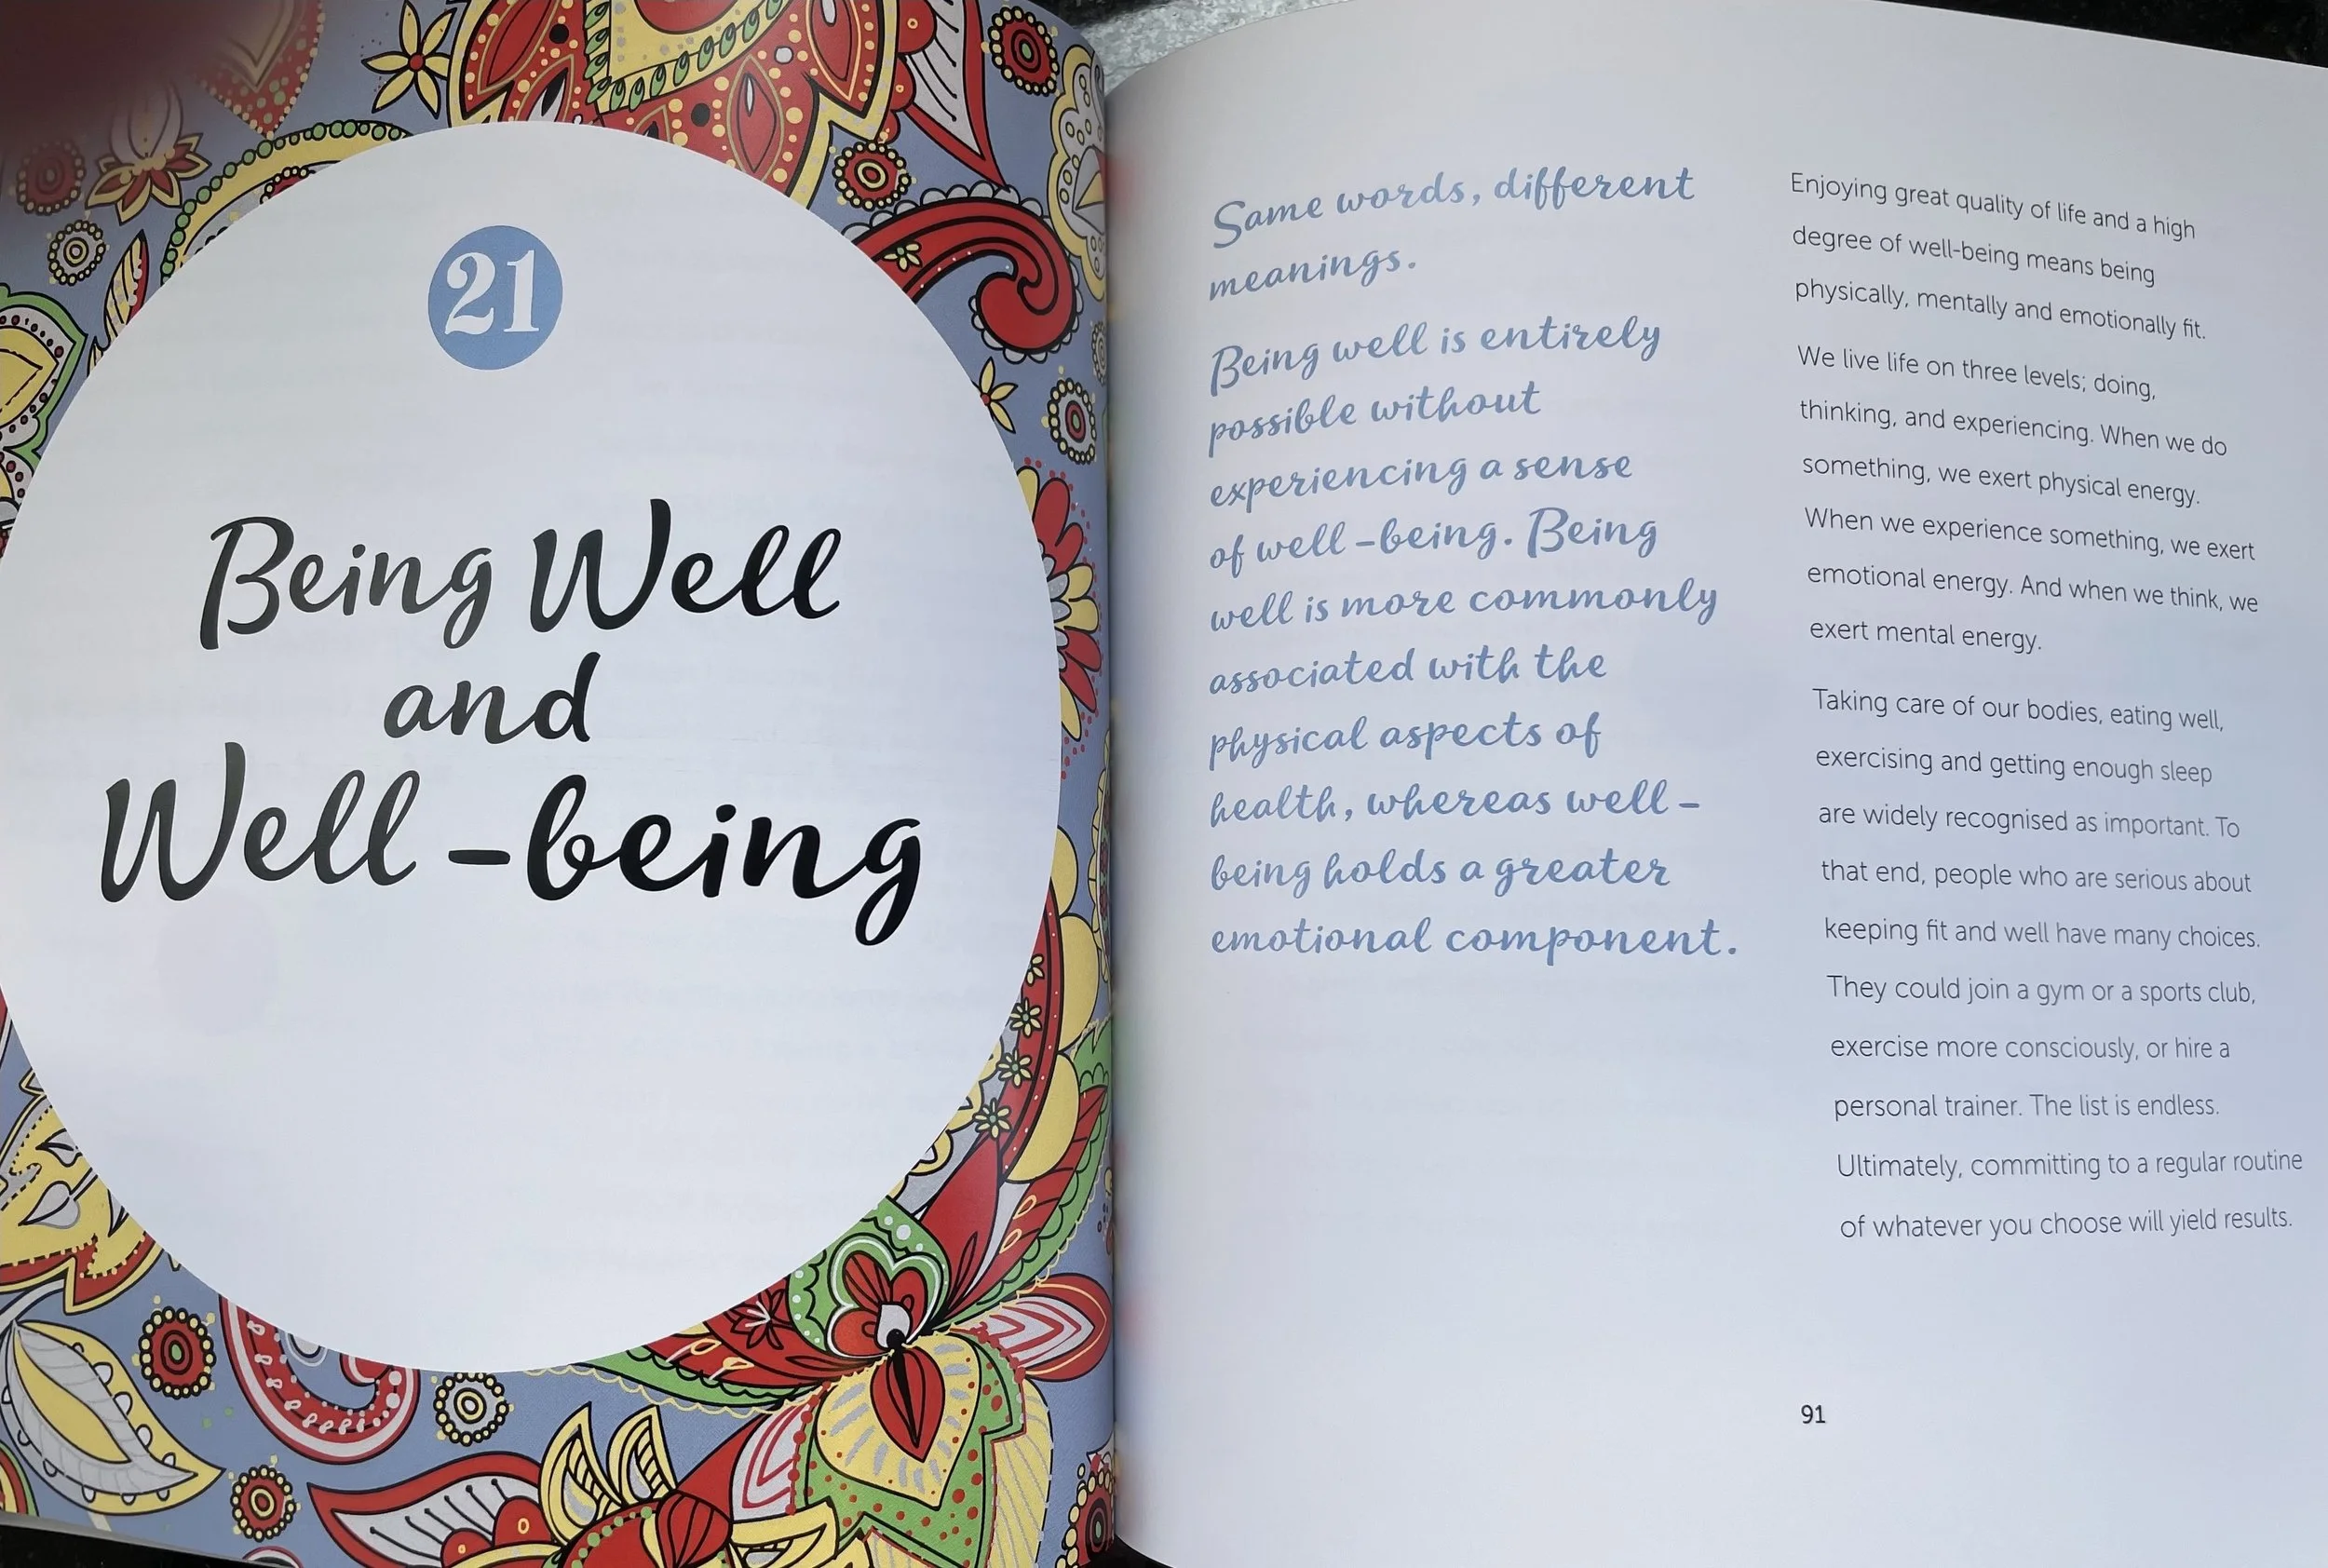 21
Being Well
and
Well-being
Same words, different
meanings.
Being well is entirely
possible without
experiencing a sense
of well-being. Being
well is more commonly
associated with the
physical aspects of
health, whereas well-
being holds a greater
emotional component.
Enjoying great quality of life and a high
degree of well-being means being
physically, mentally and emotionally fit.
We live life on three levels; doing,
thinking, and experiencing. When we do
something, we exert physical energy.
When we experience something, we exert
emotional energy. And when we think, we
exert mental energy.
Taking care of our bodies, eating well,
exercising and getting enough sleep
are widely recognised as important. To
that end, people who are serious about
keeping fit and well have many choices.
They could join a gym or a sports club,
exercise more consciously, or hire a
personal trainer. The list is endless.
Ultimately, committing to a regular routine
of whatever you choose will yield results.
91